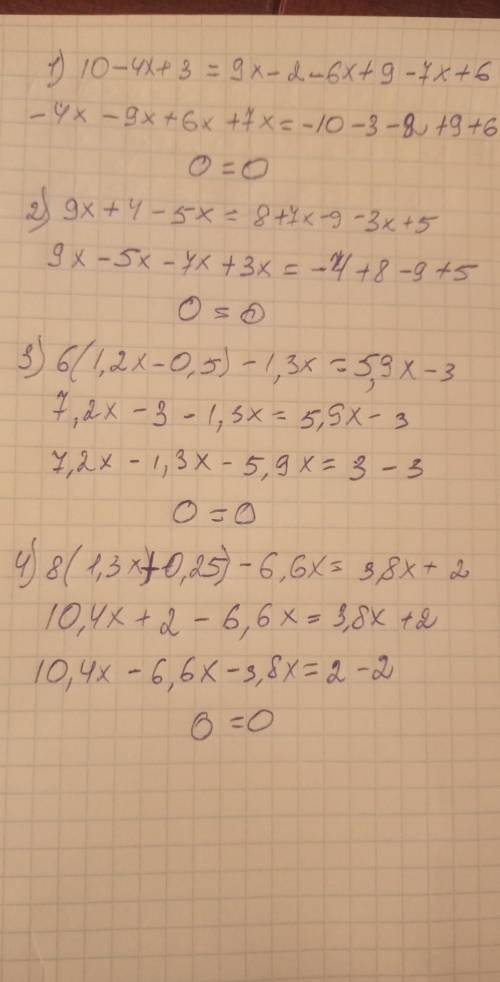 1) 10-4x+3 = 9x-2-6x+9-7x+6
-4x-9x+6x+7x=-10-3-2+9+6
0=0
2) 9x+4-5x= 8+7x-9-3x+5
9x-5x-7x+3x=-4+8-9+5
0=0
3) 6(1,2x-0,5)-1,3x=5,9x-3
7,2x-3-1,3x=5,9x-3
7,2x-1,3x-5,9x=3-3
0=0
4) 8(1,3x+0,25)-6,6x=3,8x+2
10,4x+2-6,6x=3,8x+2
10,4x-6,6x-3,8x=2-2
0=0